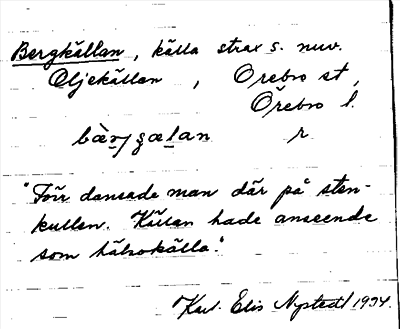 Bergkällan, källa strax s. nuv.
Oljekällan, Örebro st,
Örebro l.
bær̬jȝælan r
"Förr dansade man där på sten-
kullen. Källan hade anseende
som hälsokälla."
Karl Elis Nystedt 1934.